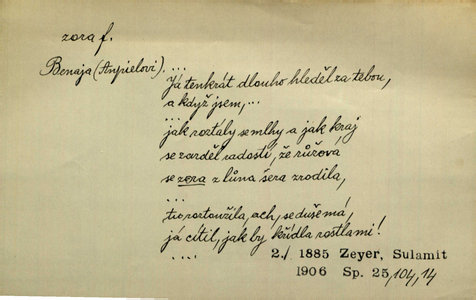 zora f.
Benaja (Anpielovi). ...
Já tenkrát dlouho hleděl za tebou,
a když jsem, ...
...
jak roztály se mlhy a jak kraj
se zarděl radostí, že růžová
se zora z lůna šera zrodila,
...
roztoužila, ach, se duše má,
já cítil, jak by křídla rostla mi!
....
2./ 1885 Zeyer, Sulamit
1906 Sp. 25/104, 14